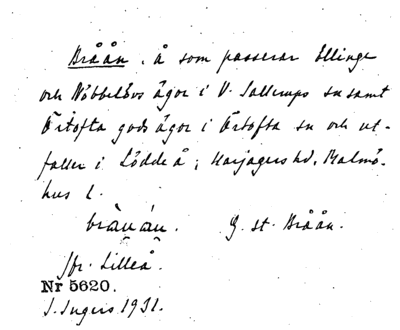 Bråån, å som passerar Ellinge
och Nöbbelövs ägor i V. Sallerups sn samt
Örtofta gods ägor i Örtofta sn och ut-
faller i Lödde å; Harjagers hd, Malmö-
hus l.
brånán. G. st. Bråån.
Jfr. Lilleå.
Nr 5620.
I. Ingers 1931.